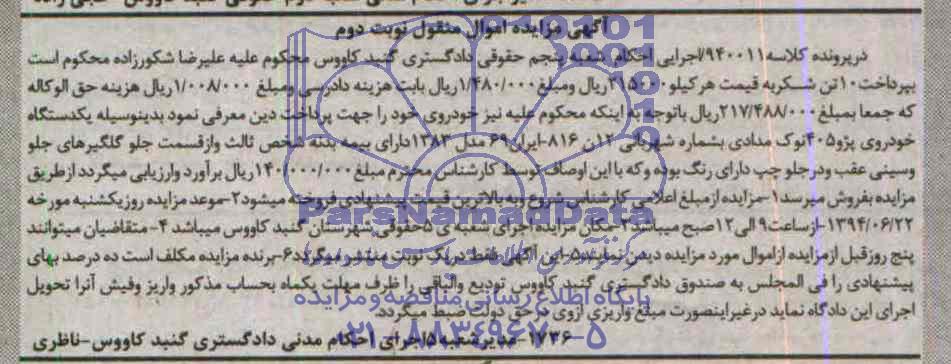 آگهی مزایده اموال منقول نوبت دوم
درپرونده کلاسه ۹۴۰۰۱۱/اجرایی احکام شعبه پنجم حقوقی دادگستری گنبد کاووس محکوم علیه علیرضا شکورزاده محکوم است
بپرداخت ۱۰تن شکربه قیمت هرکیلو ۲۱۵۰۰ریال ومبلغ ۱/۴۸۰/۰۰۰ریال بابت هزینه دادرسی ومبلغ ۱/۰۰۸/۰۰۰ریال هزینه حق الوکاله
که جمعا بمبلغ ۲۱۷/۴۸۸/۰۰۰ریال باتوجه به اینکه محکوم علیه نیز خودروی خود را جهت پرداخت دین معرفی نمود بدینوسیله یکدستگاه
خودروی پژو۴۰۵نوک مدادی بشماره شهربانی ۱۲ن ۸۱۶-ایران۶۹ مدل ۱۳۸۳دارای بیمه بدنه شخص ثالث وازقسمت جلو گلگیرهای جلو
وسینی عقب ودرجلو چپ دارای رنگ بوده وکه با این اوصاف توسط کارشناس محترم مبلغ ۱۴۰/۰۰۰/۰۰۰ریال برآورد وارزیابی میگردد ازطریق
مزایده بفروش میرسد۱-مزایده ازمبلغ اعلامی کارشناس شروع وبه بالاترین قیمت پیشنهادی فروخته میشود۲-موعد مزایده روزیکشنبه مورخه
۱۳۹۴/۰۶/۲۲-ازساعت۹ الی۱۲ صبح میباشد۳-مکان مزایده اجرای شعبه ی ۵حقوقی شهرستان گنبد کاووس میباشد ۴- متقاضیان میتوانند
پنج روزقبل ازمزایده ازاموال مورد مزایده دیدن نمایند۵-این آگهی فقط دریک نوبت منتشر میگردد۶-برنده مزایده مکلف است ده درصد بهای
پیشنهادی را فی المجلس به صندوق دادگستری گنبد کاووس تودیع والباقی را ظرف مهلت یکماه بحساب مذکور واریز وفیش آنرا تحویل
اجرای این دادگاه نماید درغیراینصورت مبلغ واریزی ازوی درحق دولت ضبط میگردد.
۱۷۳۶-مدیرشعبه۵اجرای احکام مدنی دادگستری گنبد کاووس-ناظری
ParsNamadData
پایگاه اطلاع رسانی مناقصه و مزایده
۰۲۱-۸۸۳۴۹۶۷۰-۵